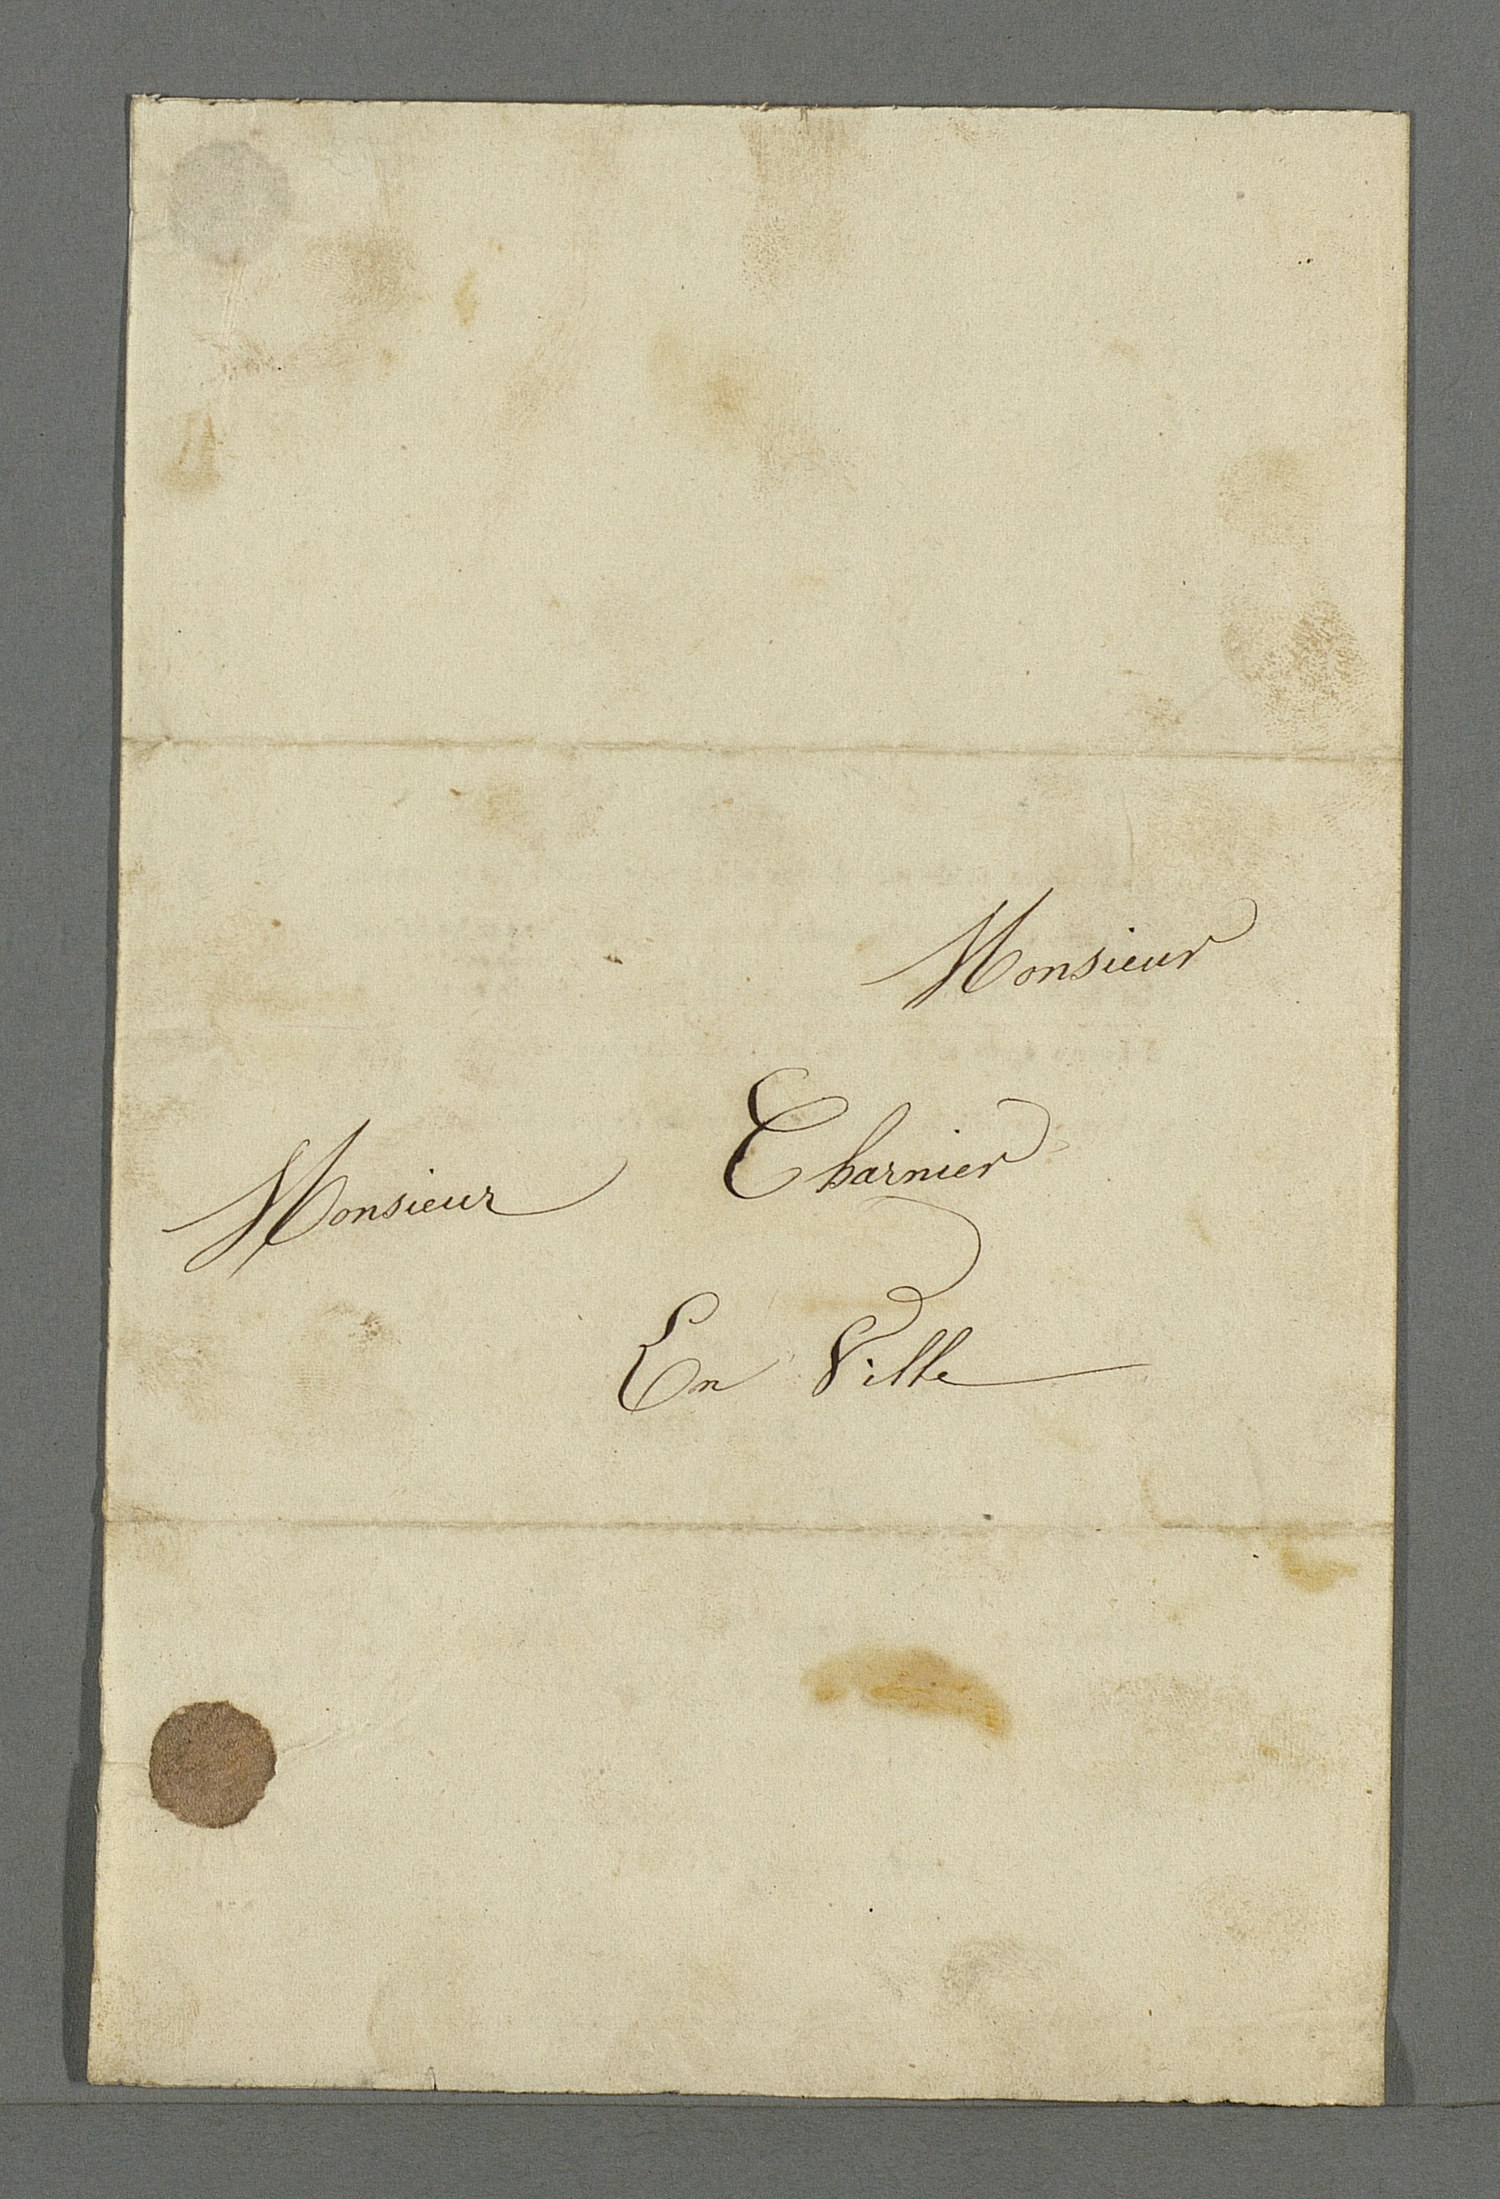 Monsieur
Monsieur Charnier
En Ville